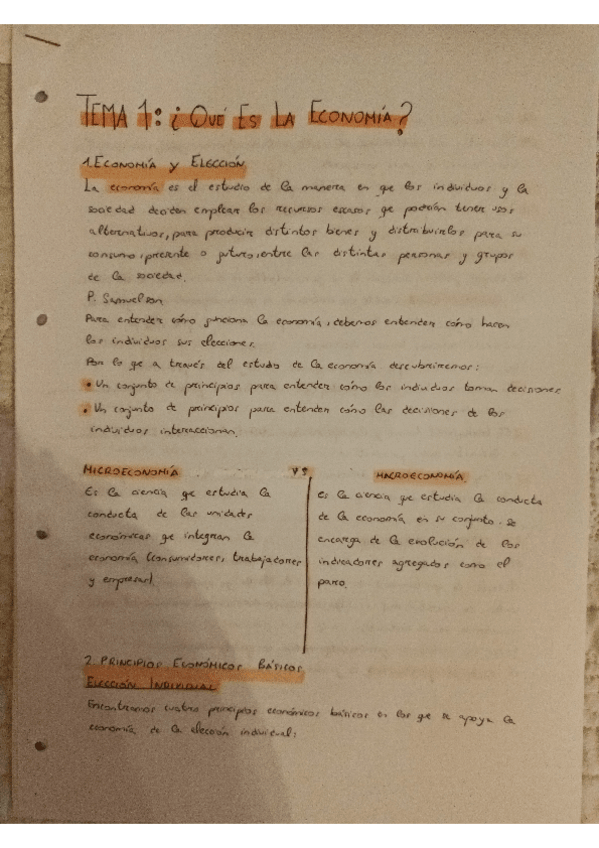 TEMA 1: ¿QUÉ ES LA ECONOMÍA?
1. ECONOMÍA Y ELECCIÓN
La economía es el estudio de la manera en que los individuos y la
sociedad deciden emplear los recursos escasos qe podrían tener usos
alternativos, para producir distintos bienes y distribuirlos para su
consumo, presente o futuro, entre las distintas personas y grupos
de la sociedad.
P. Samuelson
Para entender cómo funciona la economía, debemos entender cómo hacen
los individuos sus elecciones.
Por lo qe a través del estudio de la economía descubriremos:
• Un conjunto de principios para entender cómo los individuos toman decisiones
• Un conjunto de principios para entender cómo las decisiones de los
individuos interaccionan.
MICROECONOMÍA VS MACROECONOMÍA
Es la ciencia qe estudia la
conducta de las unidades
económicas qe integran la
economía (consumidores, trabajadores
y empresas).
Es la ciencia qe estudia la conducta
de la economía en su conjunto. Se
encarga de la evolución de los
indicadores agregados como el
paro.
2. PRINCIPIOS ECONÓMICOS BÁSICOS
ELECCIÓN INDIVIDUAL
Encontramos cuatro principios económicos básicos en los qe se apoya la
economía, de la elección individual: